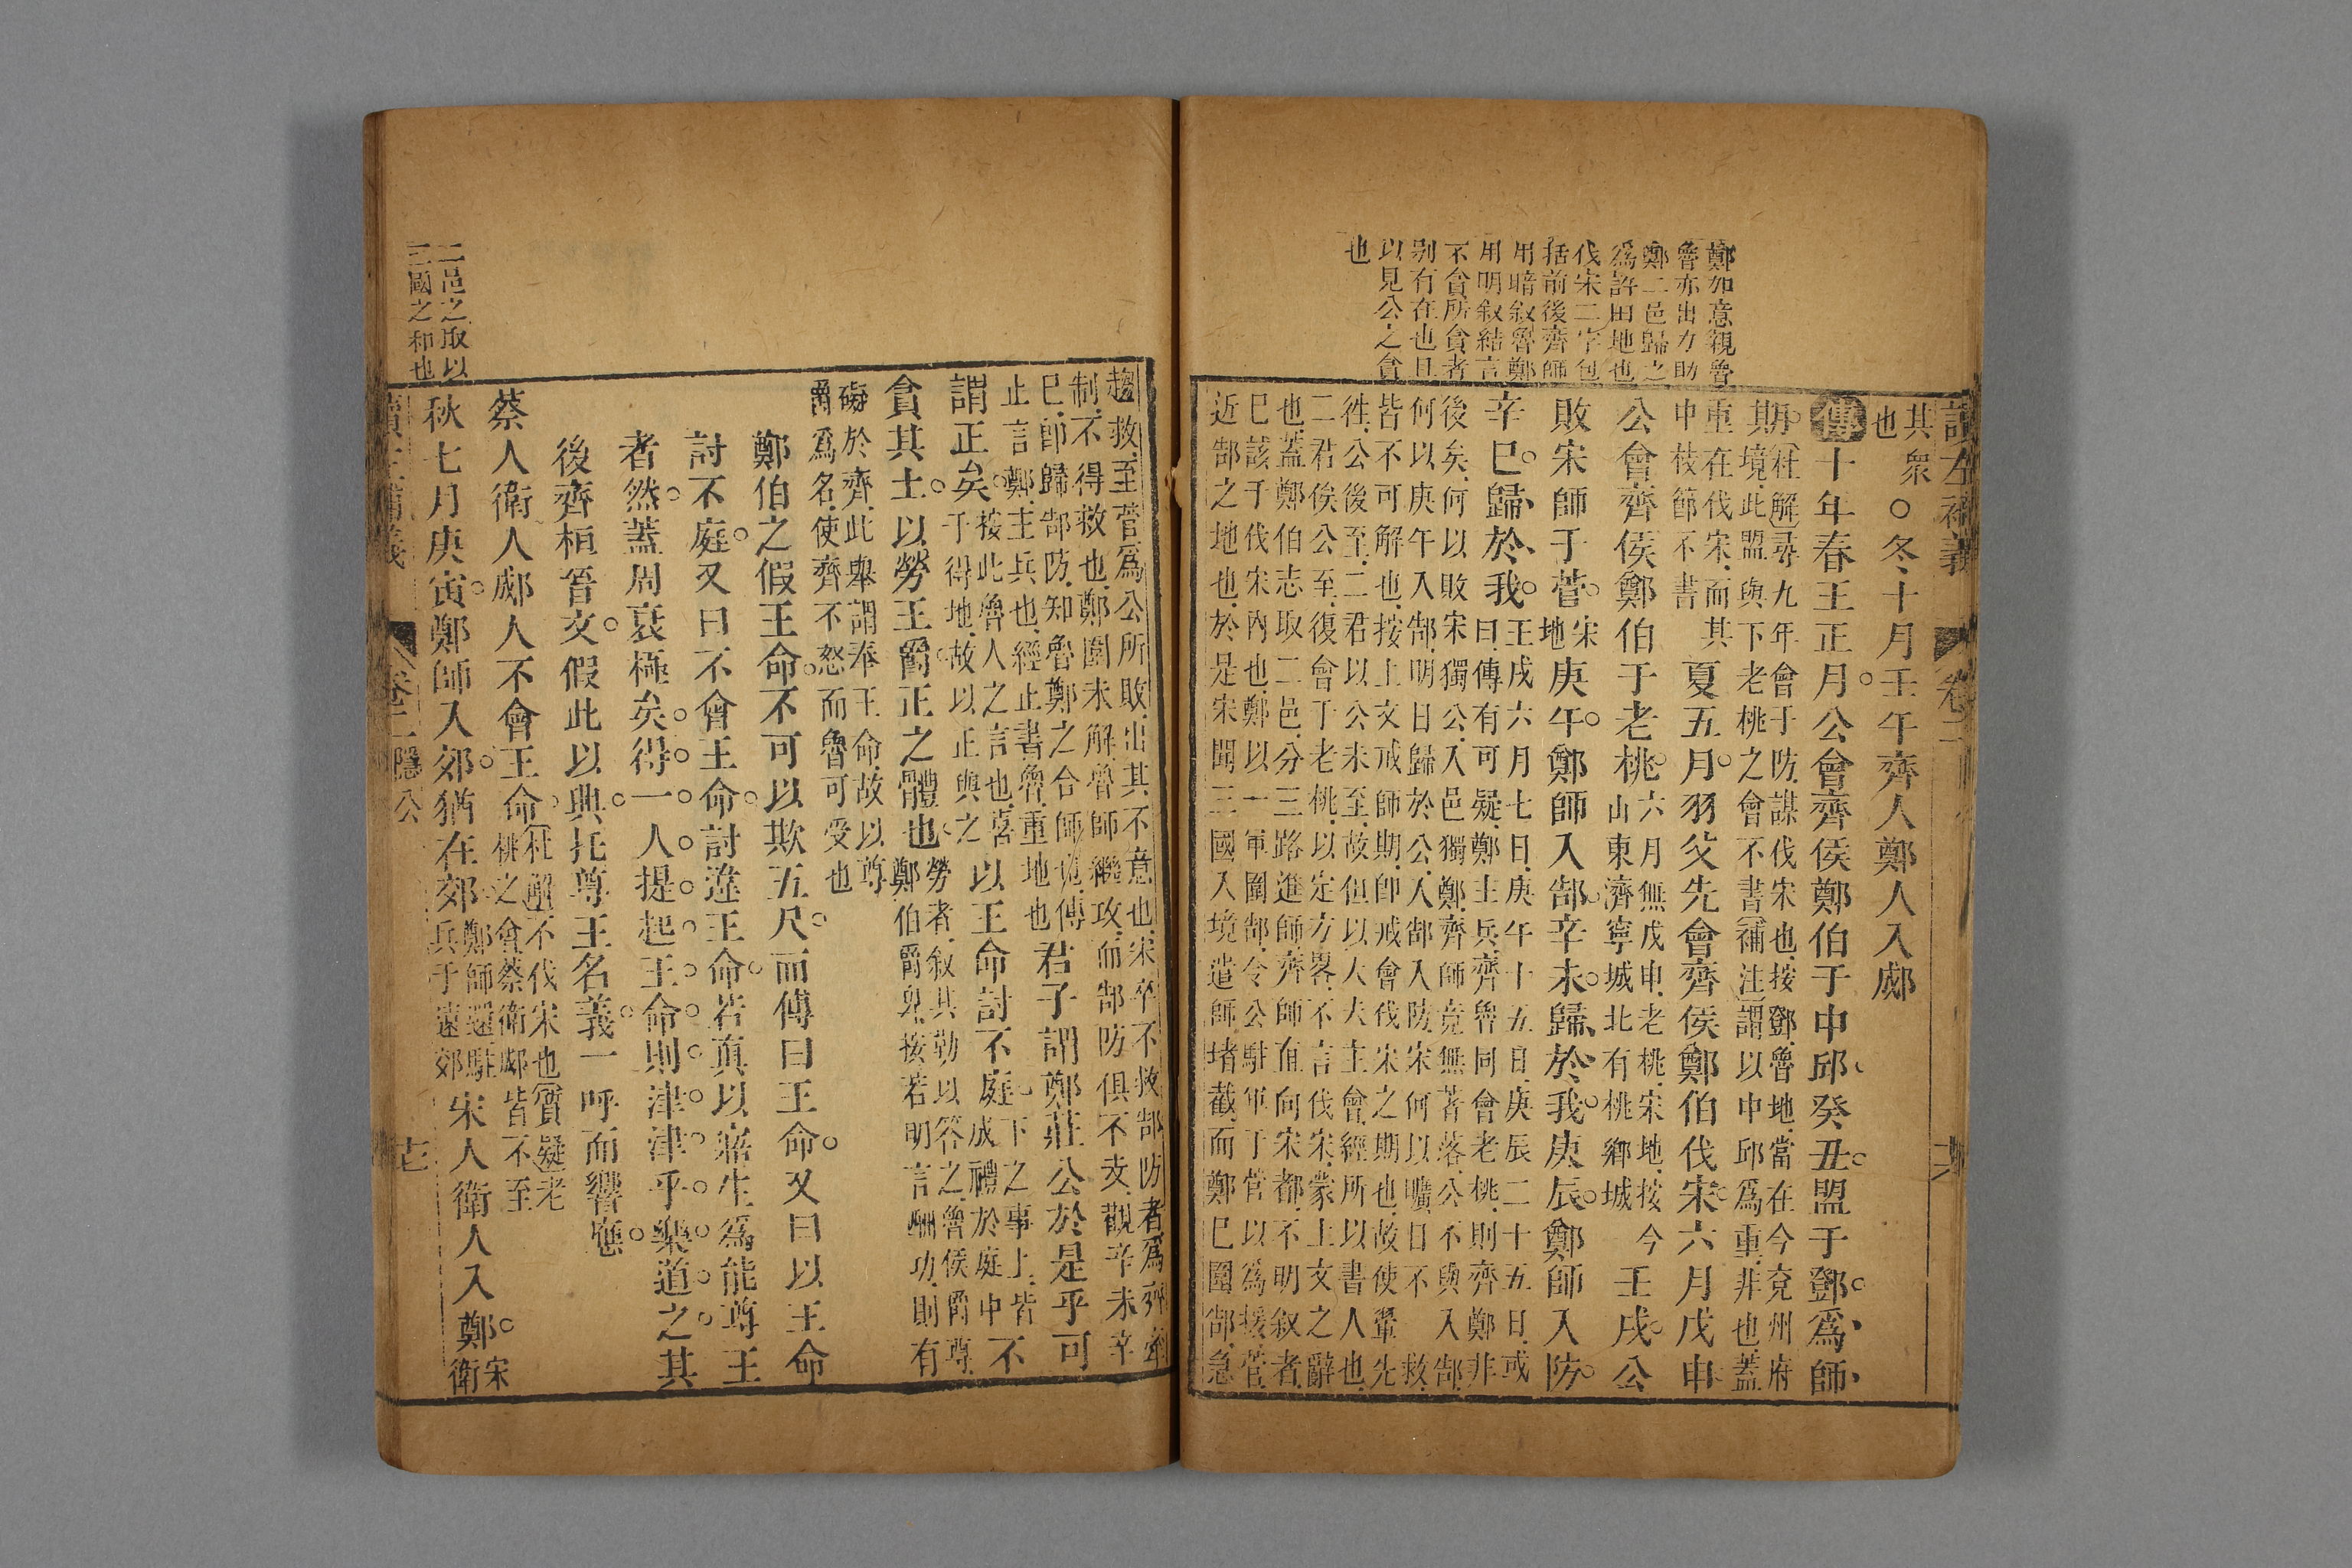 讀左補義
卷二
鄭如意親魯
魯亦出力助
鄭二邑歸之
爲許田地也
伐宋二字包
括前後齊師
用暗叙魯鄭
用明叙結言
不貪所貪者
別有在也且
以見公之貪
也
其衆
也
○冬十月壬午齊人鄭人入郕
傳十年春王正月公會齊侯鄭伯于中邱癸丑盟于鄧爲師
期
杜解尋九年會于防謀伐宋也按鄧魯地當在今兗州府
境此盟與下老桃之會不書補注謂以中邱爲重非也蓋
重在伐宋而其
中枝節不書
夏五月羽父先會齊侯鄭伯伐宋六月戊申
公會齊侯鄭伯于老桃
六月無戊申老桃宋地按今
山東濟寧城北有桃鄉城
壬戌公
敗宋師于菅
宋
地
庚午鄭師入郜辛未歸於我庚辰鄭師入防
辛巳歸於我
壬戌六月七日庚午十五日庚辰二十五日或
曰傳有可疑鄭主兵齊魯同會老桃則齊鄭非
後矣何以敗宋獨公入邑獨鄭齊師竟無著落公不與入郜
何以庚午入郜明日歸於公入郜入防宋何以曠日不救
皆不可解也按上文戒師期卽戒會伐宋之期也故使翬先
徃公後至二君以公未至故但以大夫主會經所以書人也
二君俟公至復會于老桃以定方畧不言伐宋蒙上文之辭
也蓋鄭伯志取二邑分三路進師齊師直向宋都不明叙者
已該于伐宋內也鄭以一軍圍郜令公駐軍于菅以爲援菅
近郜之地也於是宋聞三國入境遣師堵截而鄭已圍郜急
趨救至菅爲公所敗出其不意也宋卒不救郜防者爲齊牽
制不得救也鄭圍未解魯師繼攻而郜防俱不支觀辛未辛
巳卽歸郜防知魯鄭之合師也傳
止言鄭主兵也經止書魯重地也
君子謂鄭莊公於是乎可
謂正矣
按此魯人之言也喜
于得地故以正與之
以王命討不庭
下之事上皆
成禮於庭中
不
貪其土以勞王爵正之體也
勞者叙其勤以答之魯侯爵尊
鄭伯爵卑按若明言酬功則有
礙於齊此舉謂奉王命故以尊
爵爲名使齊不怒而魯可受也
鄭伯之假王命不可以欺五尺而傳曰王命又曰以王命
討不庭又曰不會王命討違王命若眞以寤生爲能尊王
者然蓋周衰極矣得一人提起王命則津津乎樂道之其
後齊桓晉文假此以興托尊王名義一呼而響應
蔡人衛人郕人不會王命
杜解不伐宋也質疑老
桃之會蔡衛郕皆不至
秋七月庚寅鄭師入郊猶在郊
鄭師還駐
兵于遠郊
宋人衛人入鄭
宋
衛
二邑之取以
三國之和也
讀左補義
卷二隱公